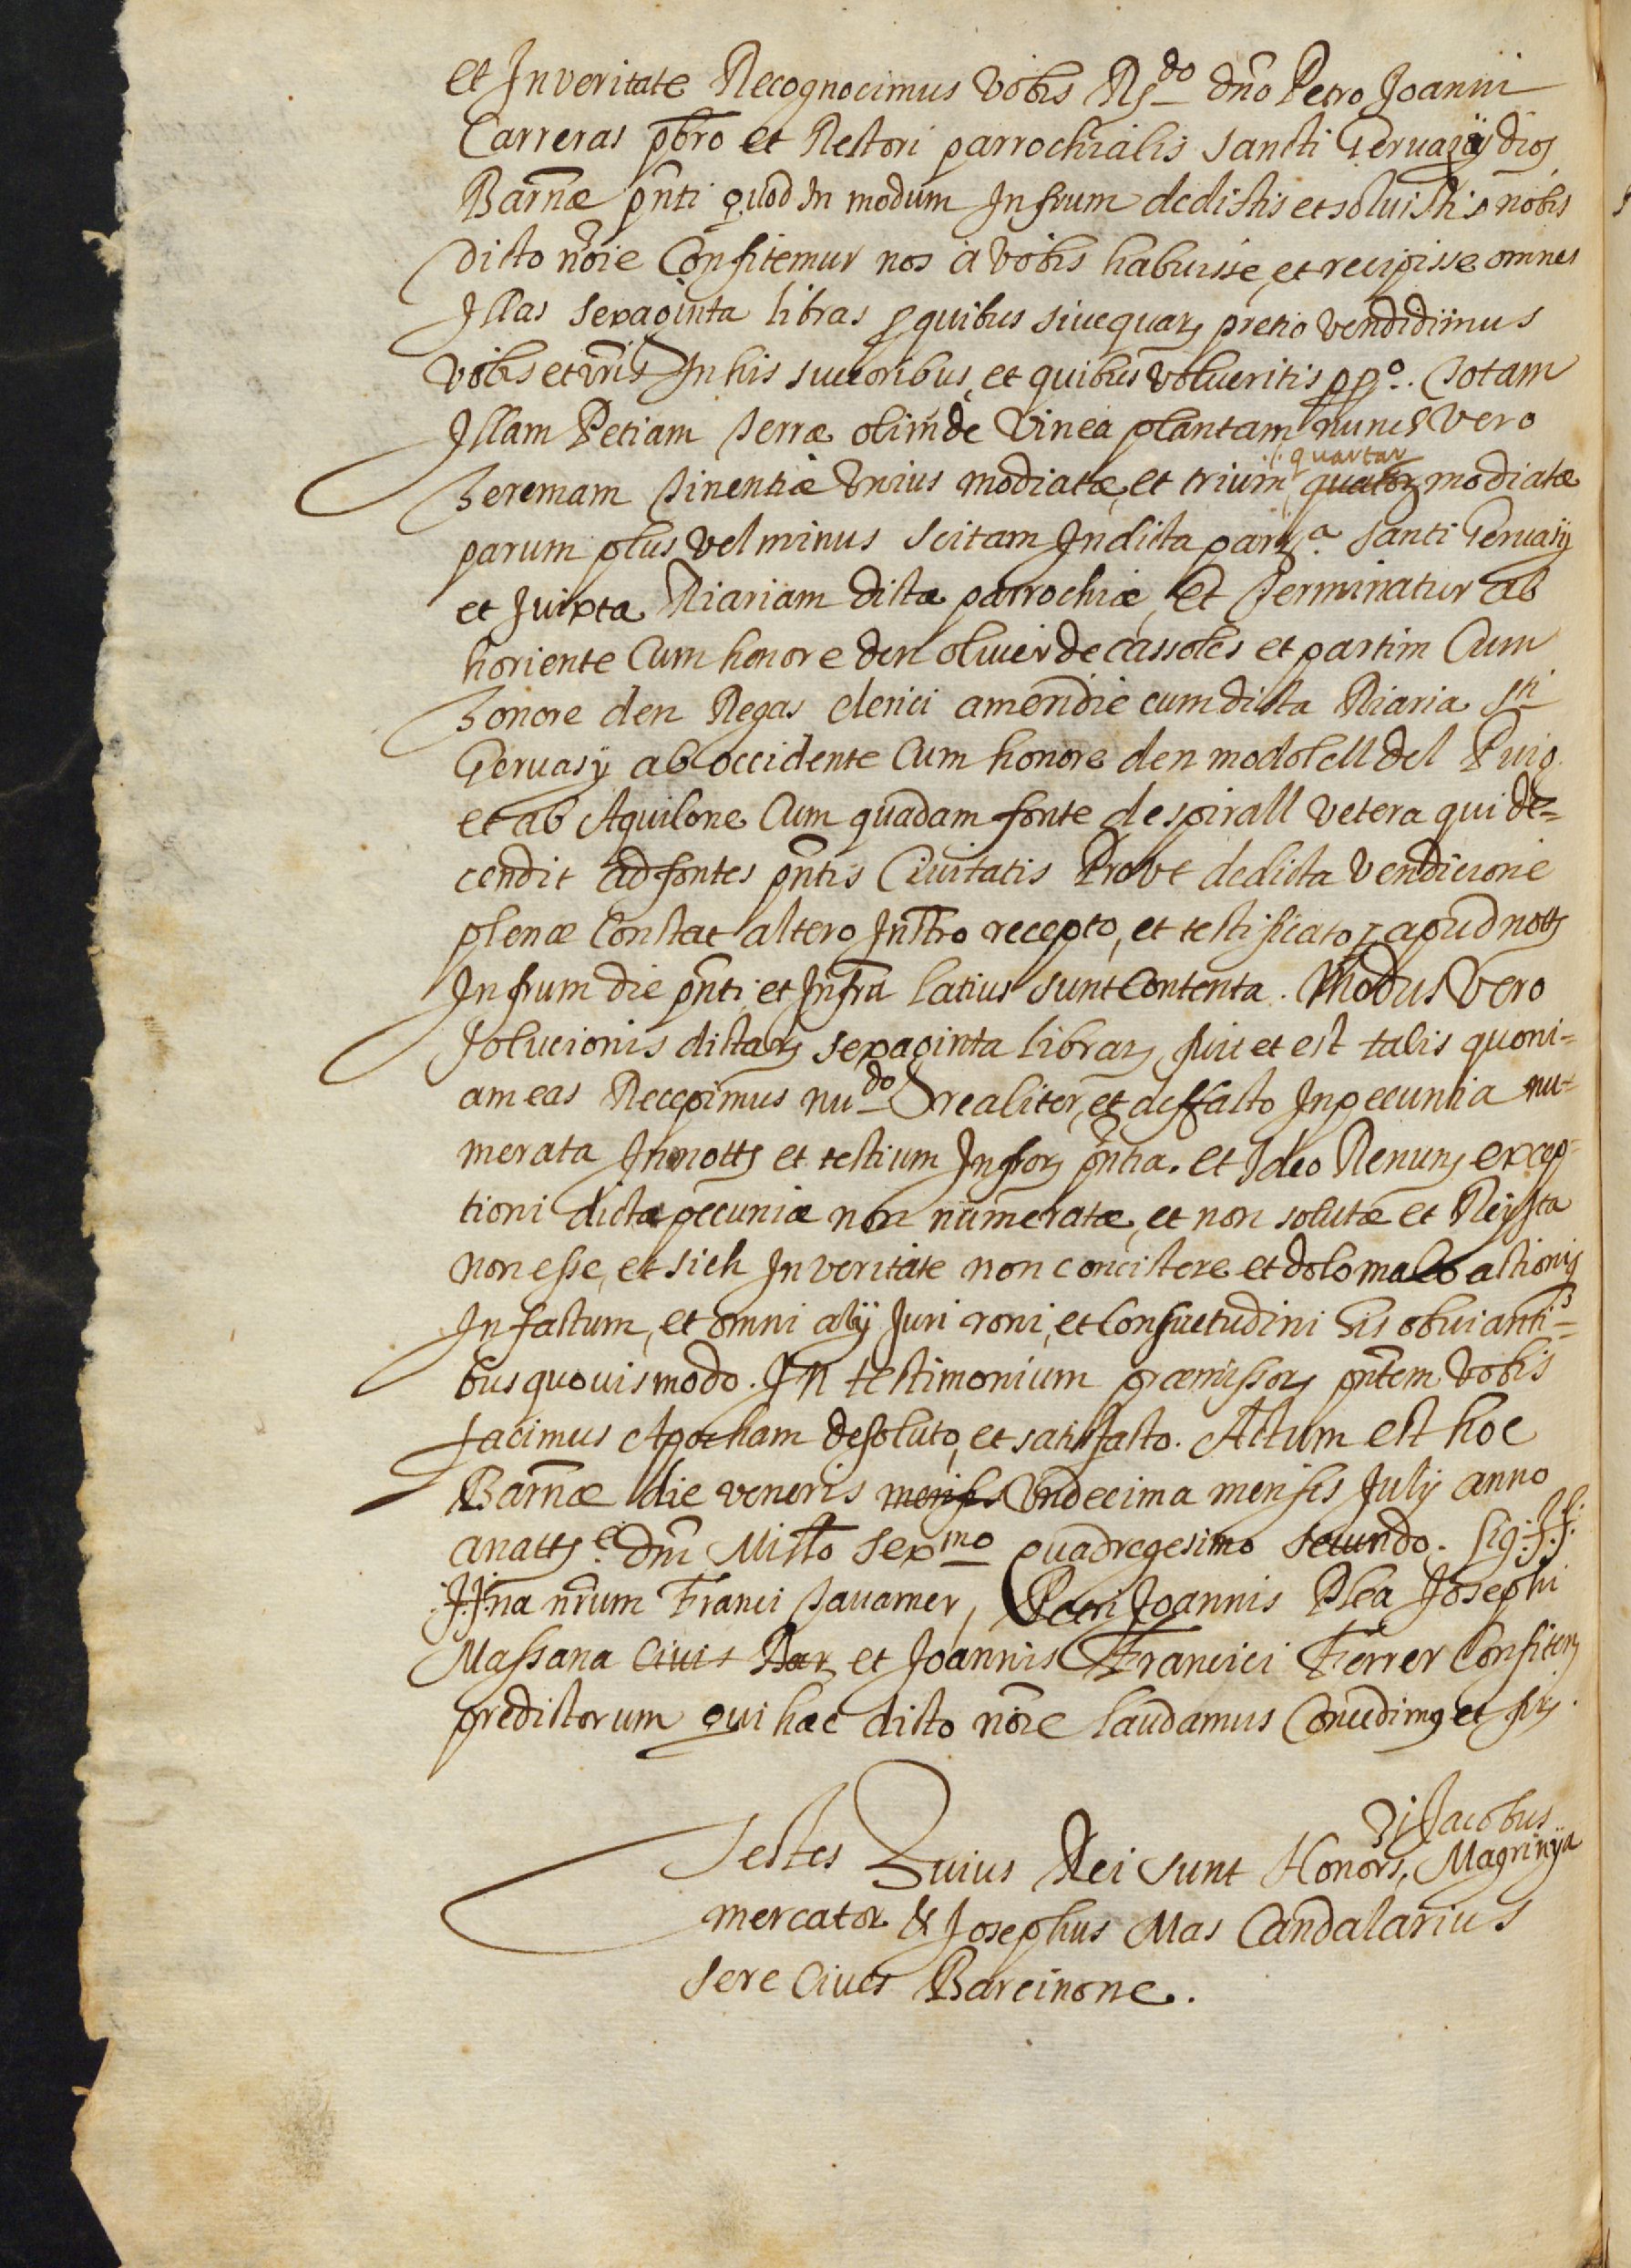 et In veritate Recognocimus vobis Rdo dño Petro Joanni
Carreras pbro et Rectori parrochialis Sancti Geruasij dios
Barnæ pñti quod In modum Infrum dedistis et soluistis nobis
dicto noie Confitemur nos a vobis habuisse, et recipisse omnes
Illas sexaginta libras p quibus siue quarz pretio vendidimus
vobis et vris In his succoribus, et quibus volueritis ppo. Totam
Illam Petiam terræ olim de Vinea plantam nunc vero
heremam tinentiæ Vnius modiatæ, et trium quartar modiatæ
parum plus vel minus scitam In dicta parra Santi Geruasij
et Juxta Riariam dictæ parrochiæ, Et terminatur ab
horiente Cum honore den oliuer de Cassoles et partim Cum
honore den Regas clerici a meridie cum dicta Riaria Sti
Geruasij ab occidente Cum honore den modolell del Puig
et ab Aquilone Cum quadam fonte de spirall vetera qui de=
cendit ad fontes pntis Ciuitatis Prout de dicta Vendicione
plenæ Constat altero Instro recepto, et testificato, apud notts
Infrum die pñti et Infra latius sunt Contenta. Modus Vero
Solucionis dictarz sexaginta librarz, fuit et est talis quoni=
am eas Recepimus nudo realiter, et deffacto In pecunia nu=
merata In notts et testium Infrorz pñtia. et Ideo Renunz excep=
tioni dictæ pecuniæ non numeratæ, et non solutæ et Rei Ista
non esse, et sich In veritate non concistere et dolo malo actionis
In factum, et omni alij Juri roni, et Consuetudini his obuianti=
bus quouismodo. In testimonium præmissorz pñtem vobis
facimus Apocham de soluto, et satisfacto. Actum est hoc
Barnæ die veneris mensis Vndecima mensis Julij anno
a natts e dñi Millo Sexmo quadregesimo secundo. Sig.f.f.
f.f.na nrum Franci Tauarner, Petri Joannis Plea Josephi
Massana Ciuis Bar et Joannis Francici Ferrer Confitenz
predictorum qui hæc dicto noie laudamus Concedimq et frz.
Di Jacobus
Testes huius Rei sunt Honors, Magrinya
mercator & Josephus Mas Candalarius
sere Ciues Barcinone.